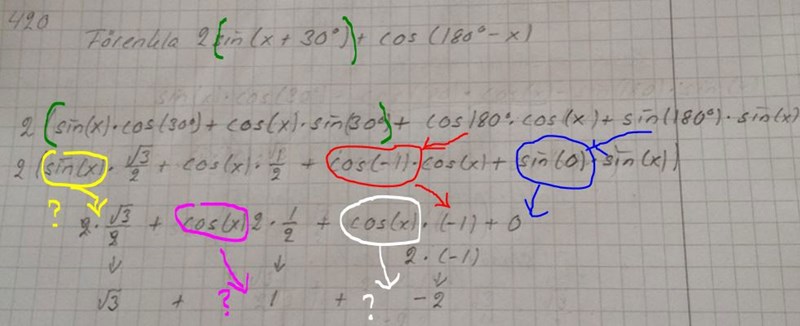 420
Förenkla 2(sin(x + 30°)) + cos (180° - x)
2 (sin(x)·cos(30°) + cos(x)·sin(30°)) + cos 180°·cos(x) + sin(180°)·sin(x)
2 (sin(x)·√3/2 + cos(x)·1/2 + cos(-1)·cos(x) + sin(0)·sin(x))
? 2·√3/2 + cos(x) 2·1/2 + cos(x)·(-1) + 0
2·(-1)
√3 + ? 1 + ? -2